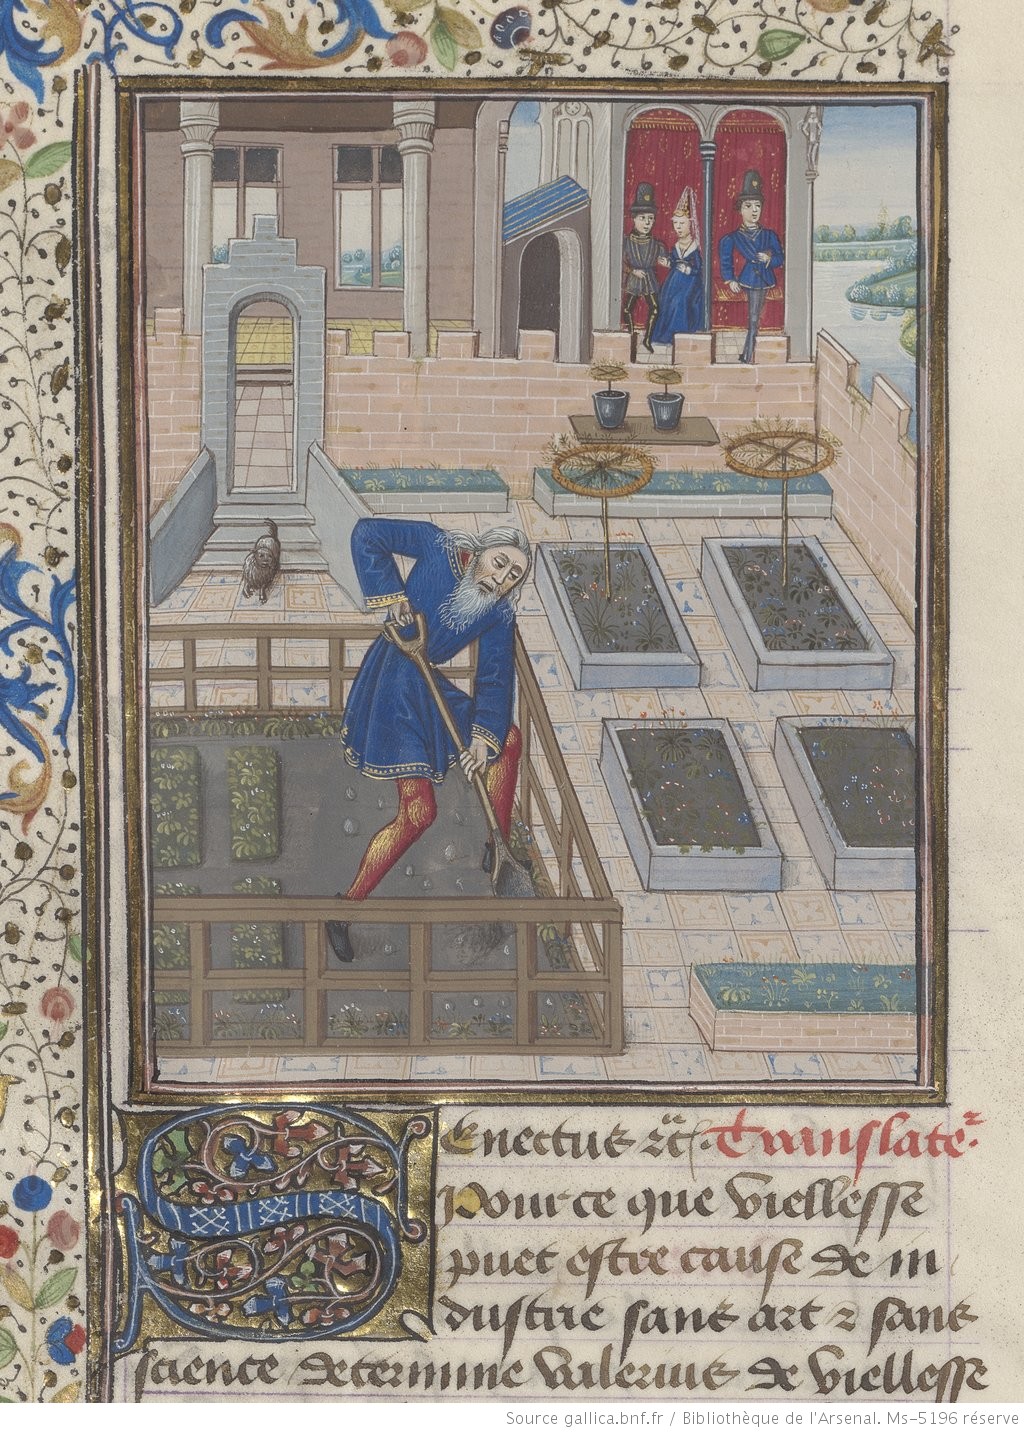 Senectus ⁊c. Translateꝛ.
Pource que viellesse
puet estre cause de in
dustrie sans art ⁊ sans
science determine valerius de viellesse
Source gallica.bnf.fr / Bibliothèque de l'Arsenal. Ms-5196 réserve